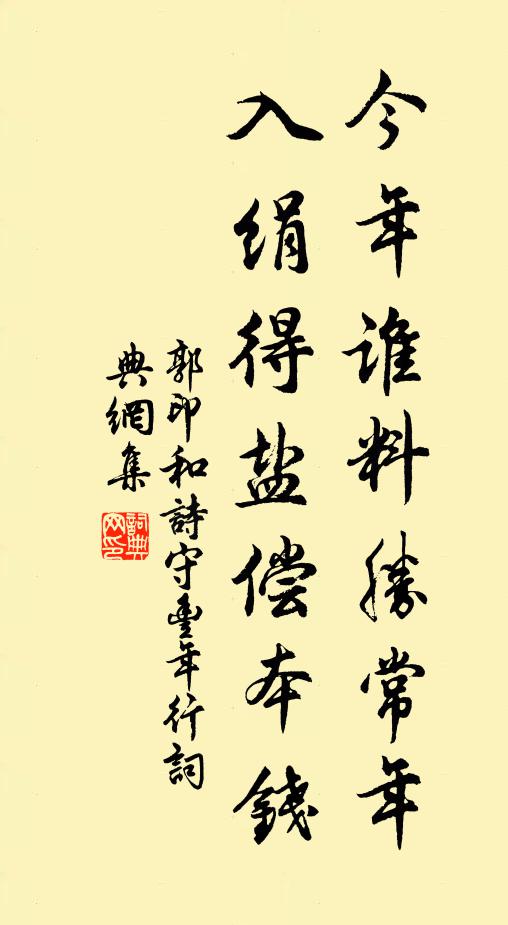 今年谁料勝常年
入绢得盐偿本錢
郭印和詩守豐年行詞
典網集
詞典
网印